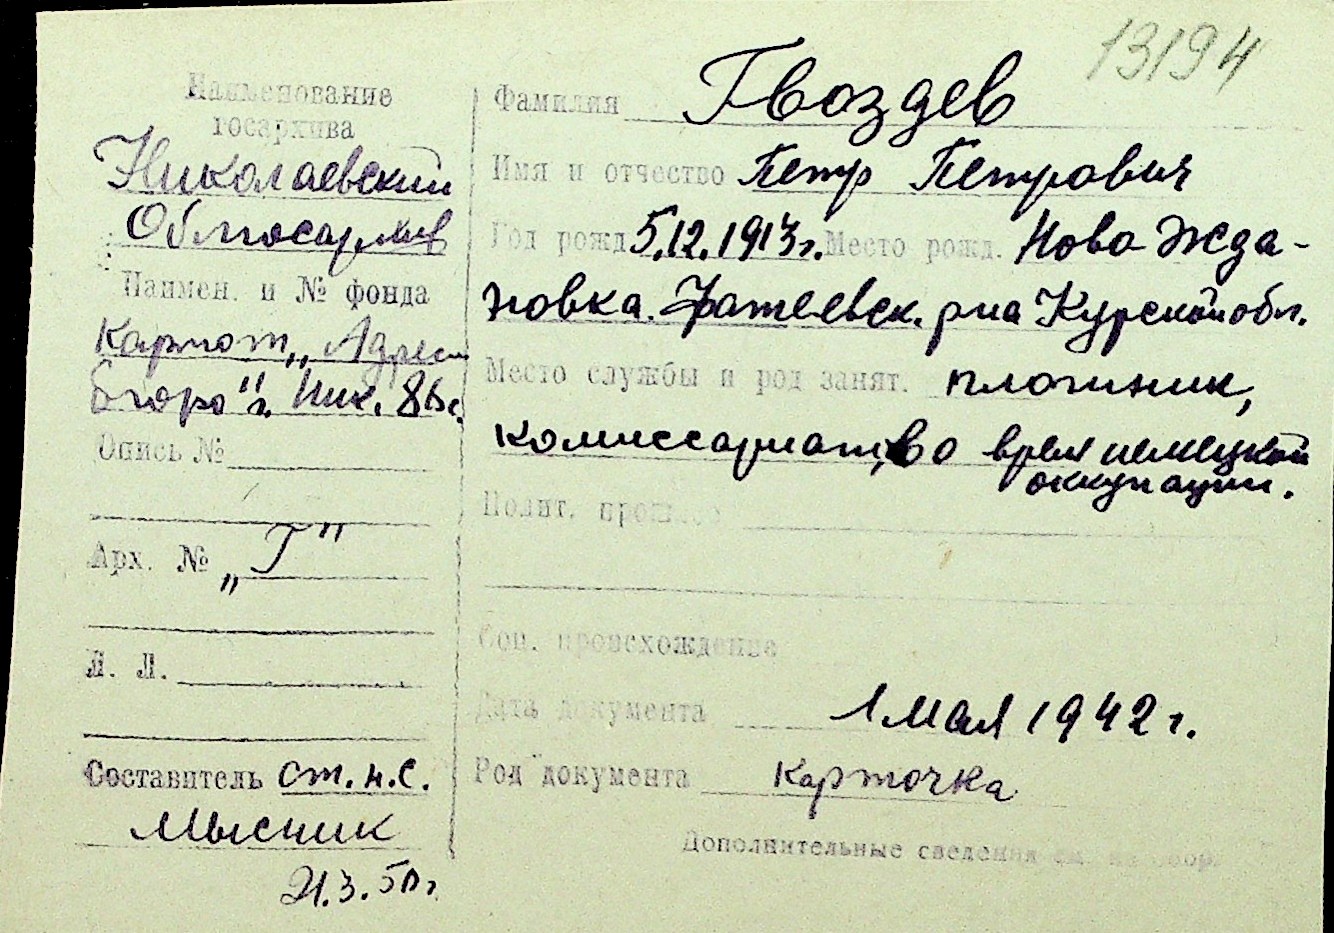 13194
Наименование
госархива
Николаевский
Облгосархив
Наимен. и № фонда
Картот. „Адресн.
бюро" г. Ник.
Опись №
Арх. № „Г"
Л. Л.
Составитель ст. н.с.
Мысник
21.3.50г
Фамилия Гвоздев
Имя и отчество Петр Петрович
Год рожд. 5.12.1913г. Место рожд. Ново Жда-
новка. Фатеевск. р-на Курской обл.
Место службы и род занят. плотник,
комиссариат, во время немецкой
оккупации.
Полит. прошлое
Соц. происхождение
Дата документа 1 мая 1942 г.
Род документа Карточка
Дополнительные сведения см. на обор.